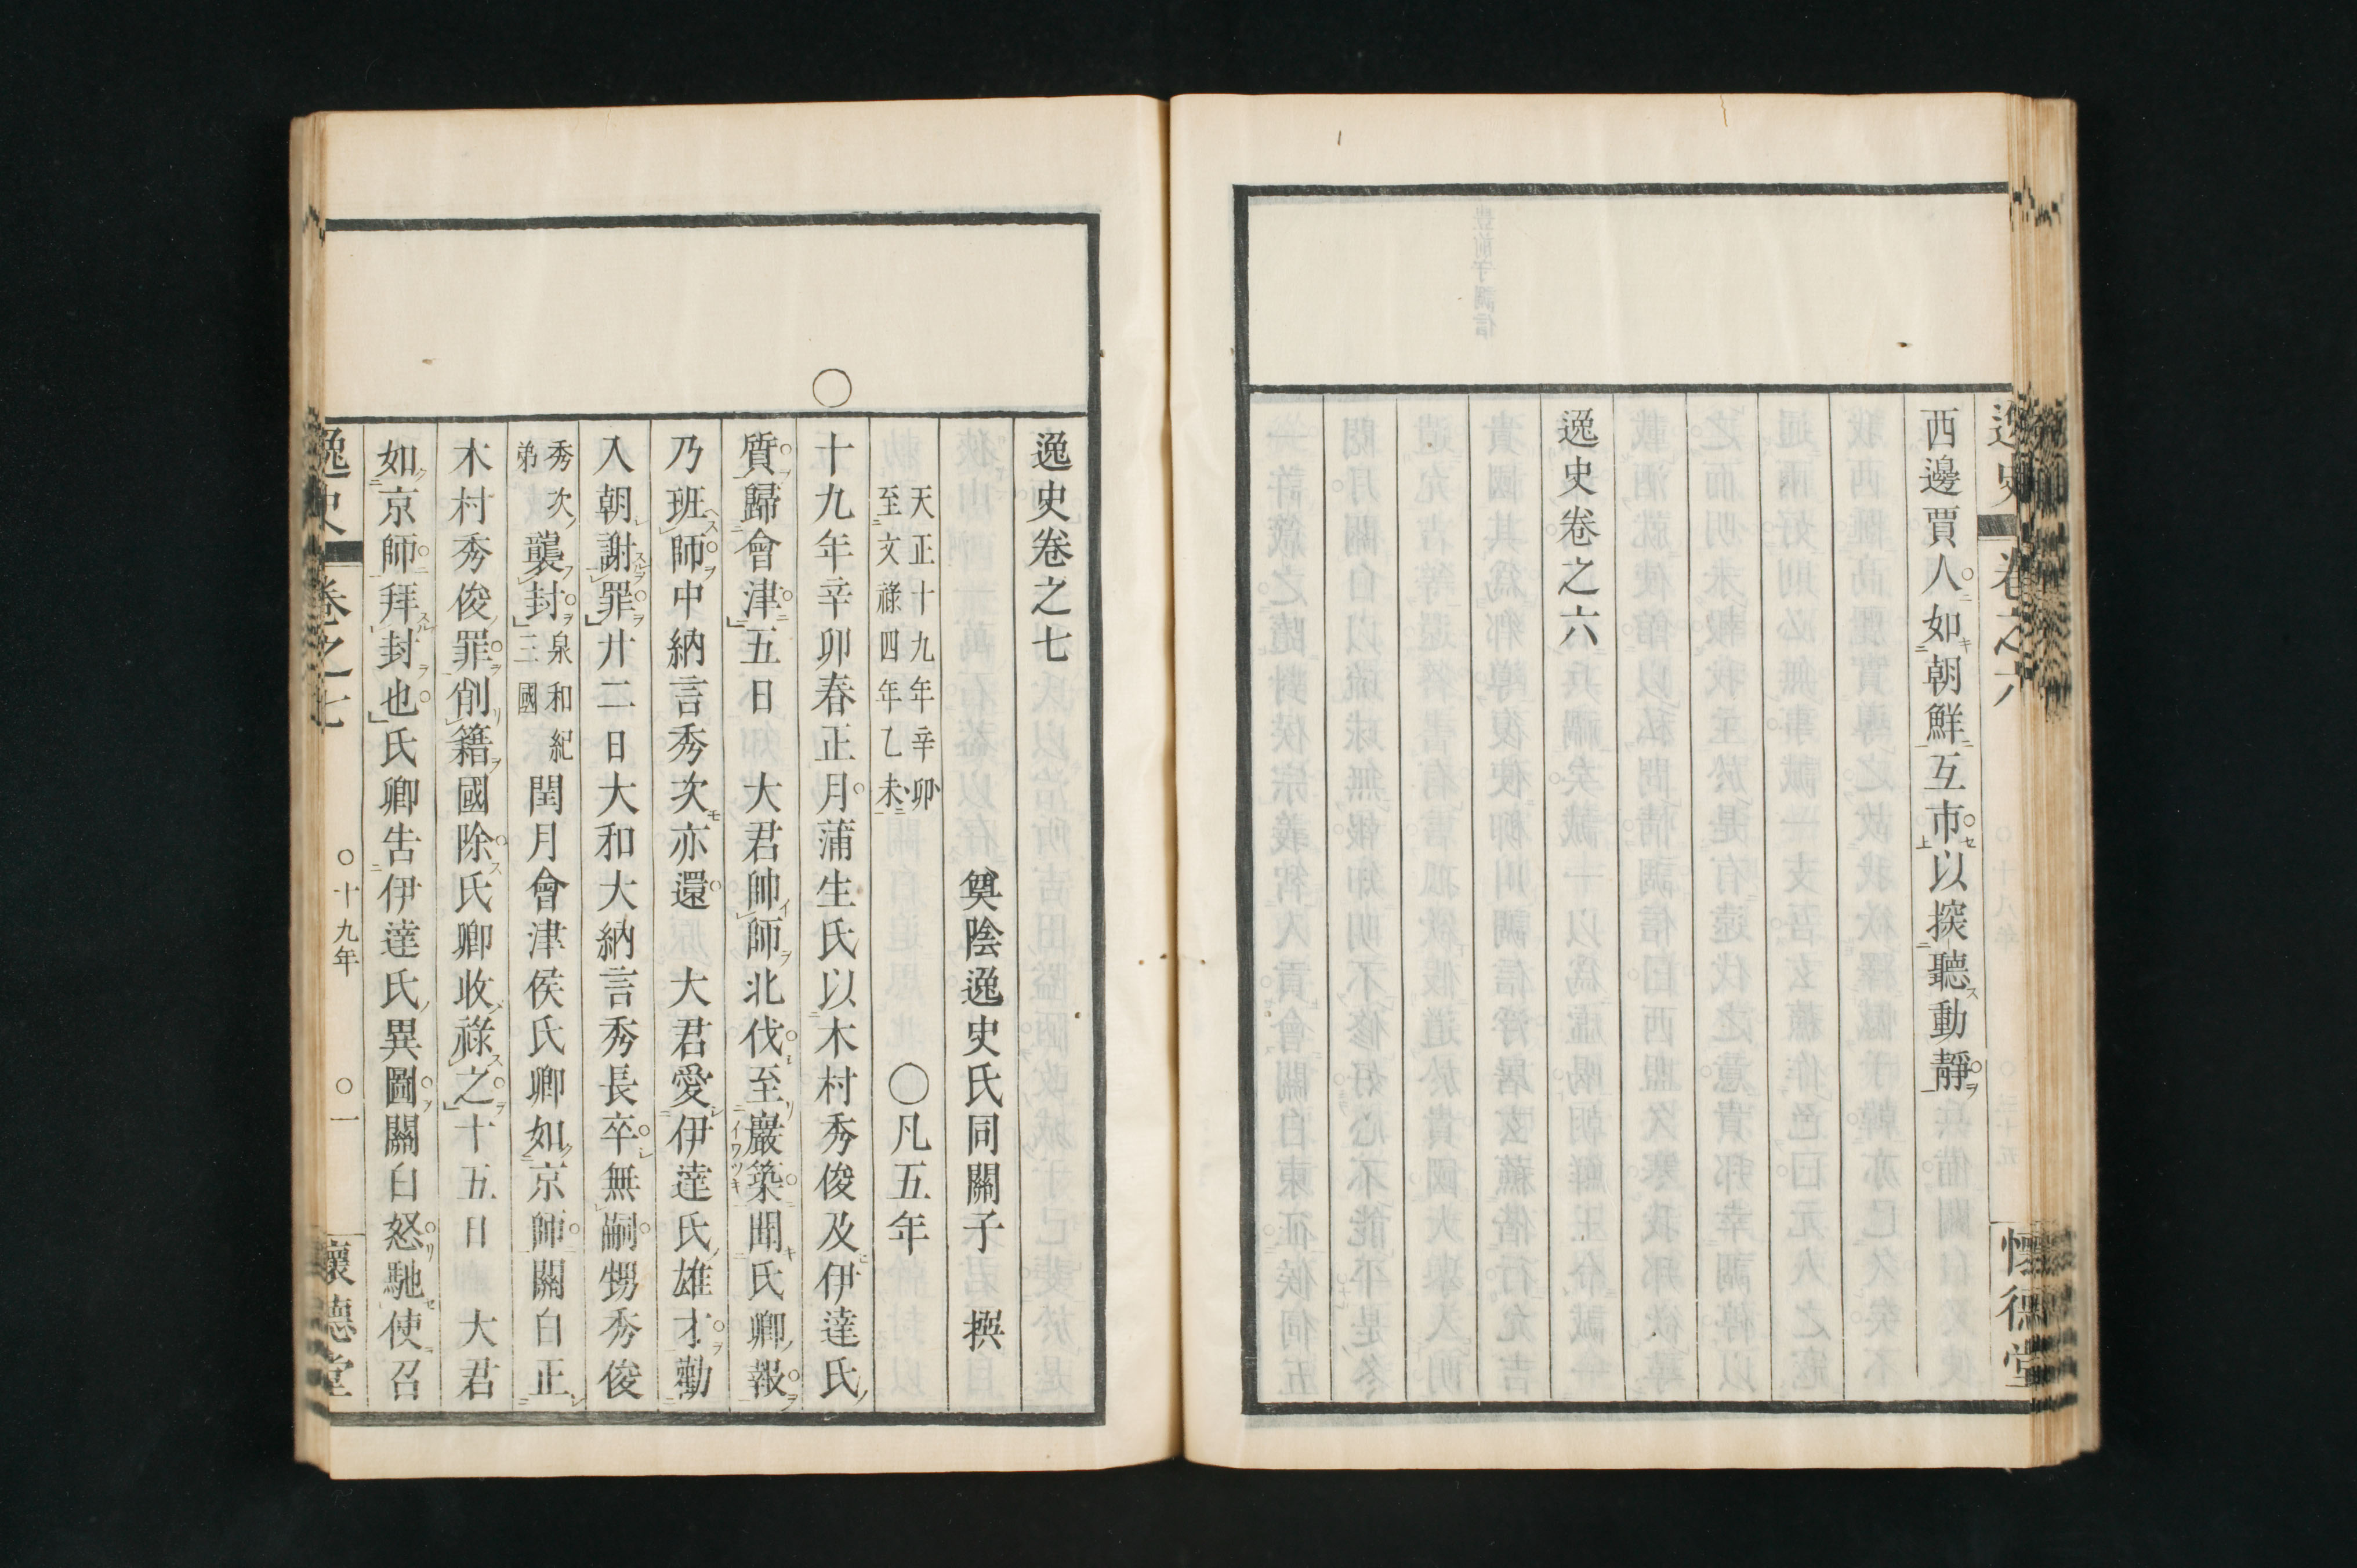 西邊賈人如朝鮮互市以探聽動靜
逸史卷之六
逸史卷之七
奠陰逸史氏同關子 撰
天正十九年辛卯
至文祿四年乙未
〇凡五年
〇
十九年辛卯春正月蒲生氏以木村秀俊及伊達氏
質歸會津五日 大君帥師北伐至巖築聞氏卿報
乃班師中納言秀次亦還 大君愛伊達氏雄才勸
入朝謝罪廿二日大和大納言秀長卒無嗣甥秀俊
秀次
弟
襲封
泉和紀
三國
閏月會津侯氏卿如京師關白正
木村秀俊罪削籍國除氏卿收祿之十五日 大君
如京師拜封也氏卿告伊達氏異圖關白怒馳使召
逸史 卷之七 〇十九年 〇一 懷德堂